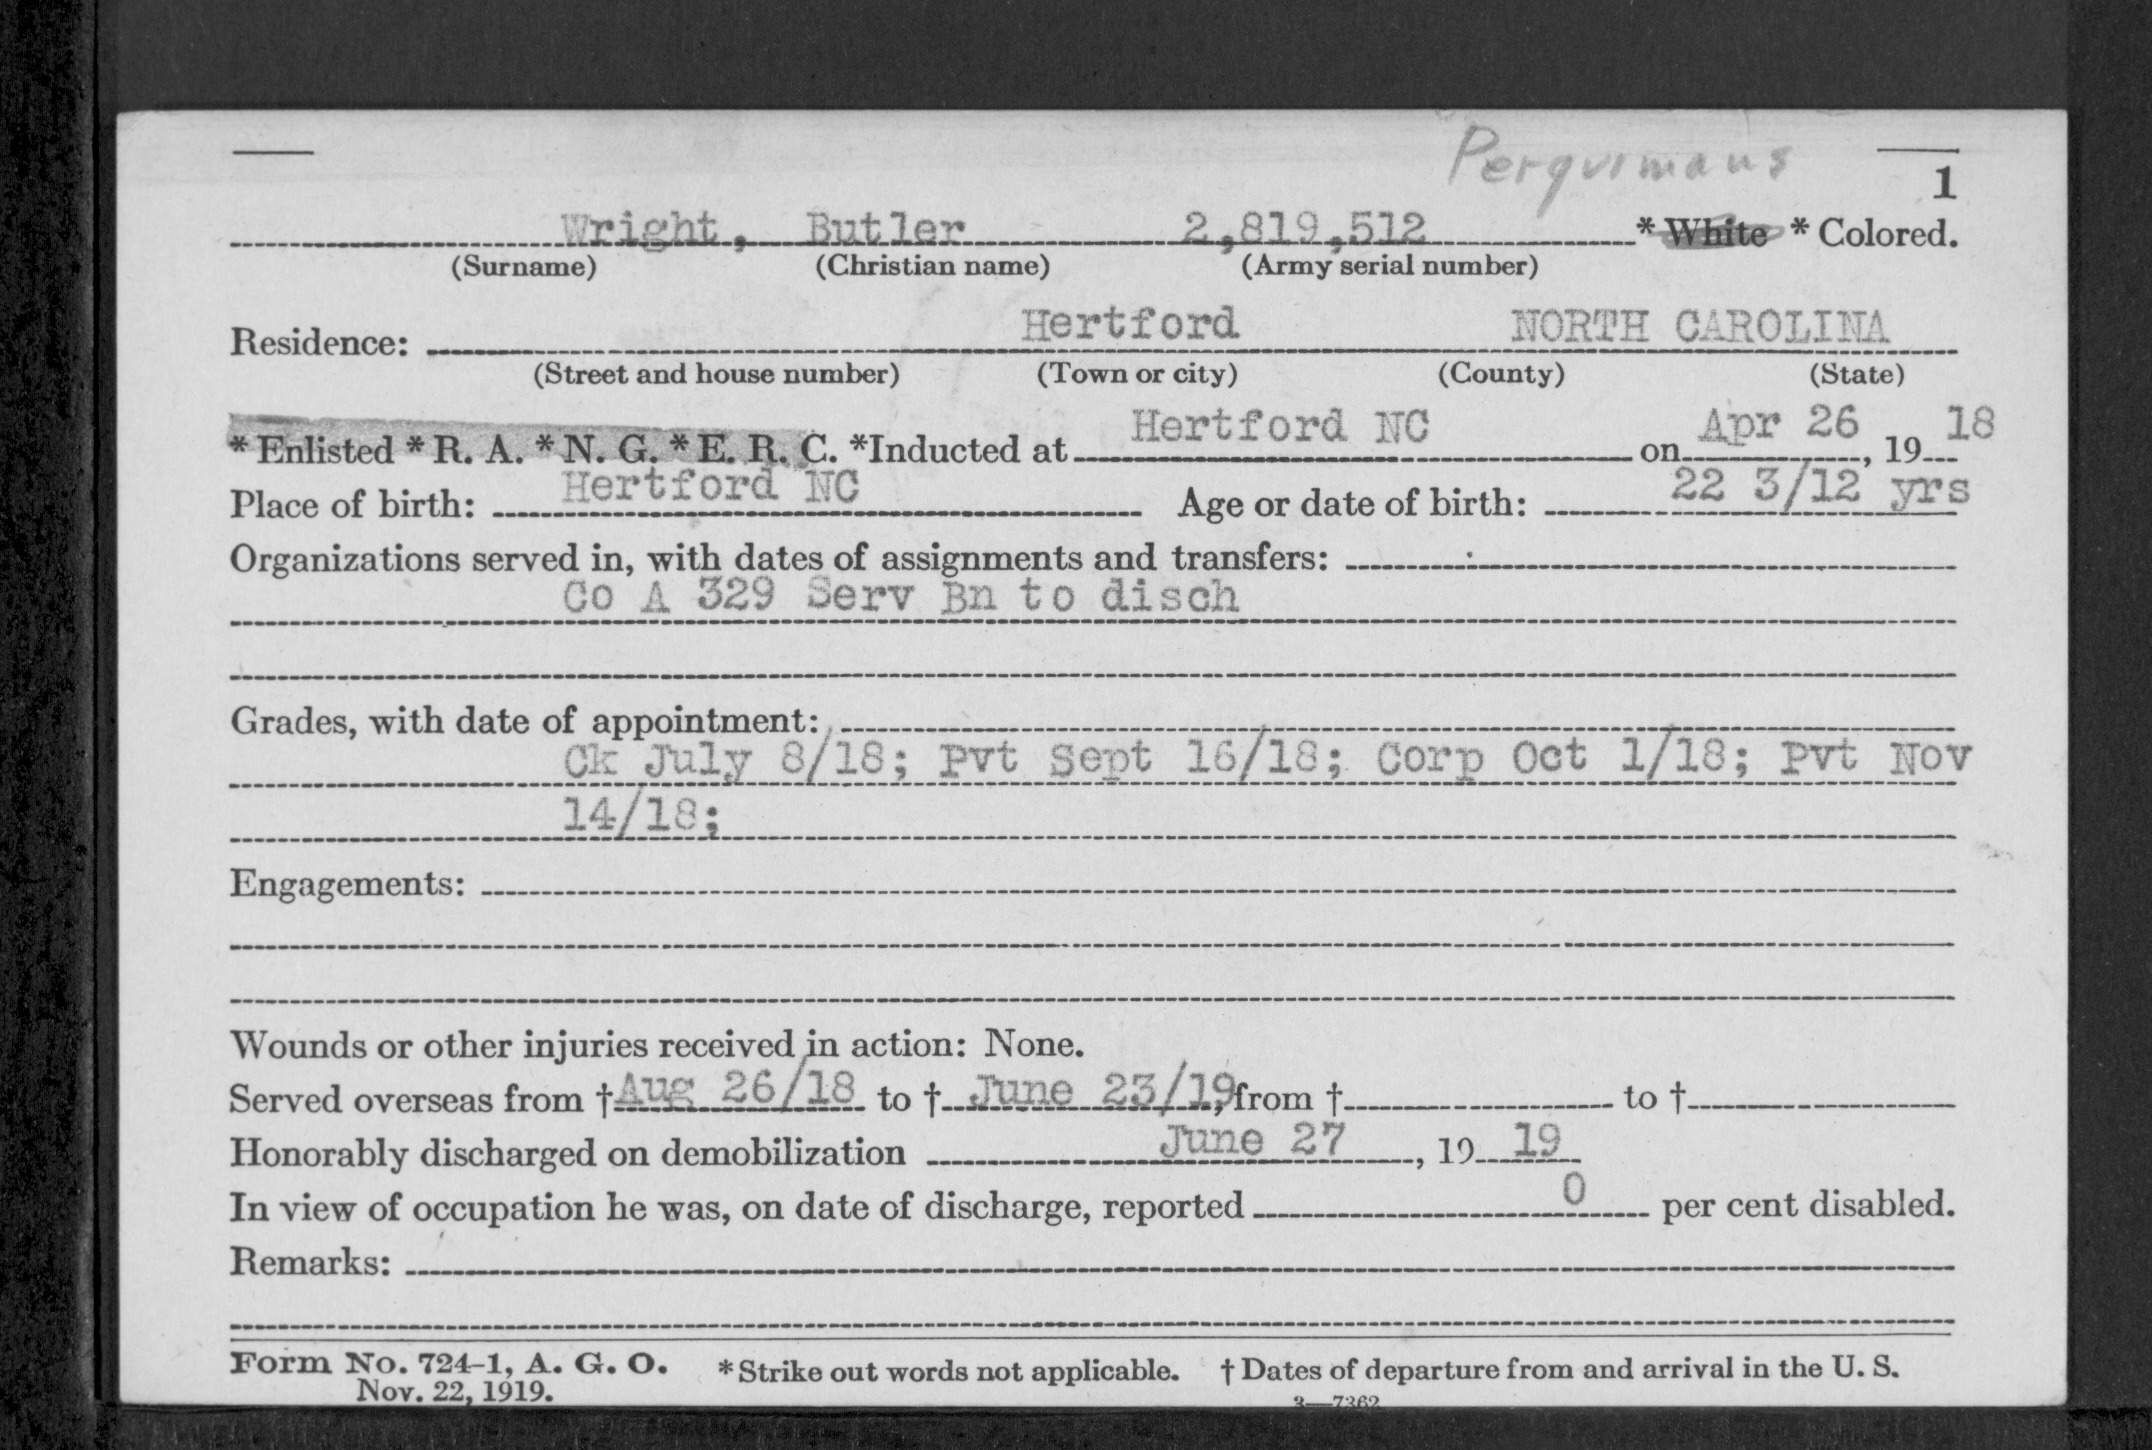 Perquimans
1
Wright, Butler 2,819,512 * White * Colored.
(Surname) (Christian name) (Army serial number)
Hertford NORTH CAROLINA
Residence:
(Street and house number) (Town or city) (County) (State)
* Enlisted * R. A. * N. G. * E. R. C. *Inducted at Hertford NC on Apr 26, 19 18
Place of birth: Hertford NC Age or date of birth: 22 3/12 yrs
Organizations served in, with dates of assignments and transfers:
Co A 329 Serv Bn to disch
Grades, with date of appointment:
Ck July 8/18; Pvt Sept 16/18; Corp Oct 1/18; Pvt Nov
14/18;
Engagements:
Wounds or other injuries received in action: None.
Served overseas from † Aug 26/18 to † June 23/19, from † to †
Honorably discharged on demobilization June 27, 19 19
In view of occupation he was, on date of discharge, reported 0 per cent disabled.
Remarks:
Form No. 724-1, A. G. O. * Strike out words not applicable. † Dates of departure from and arrival in the U. S.
Nov. 22, 1919. 3—7362